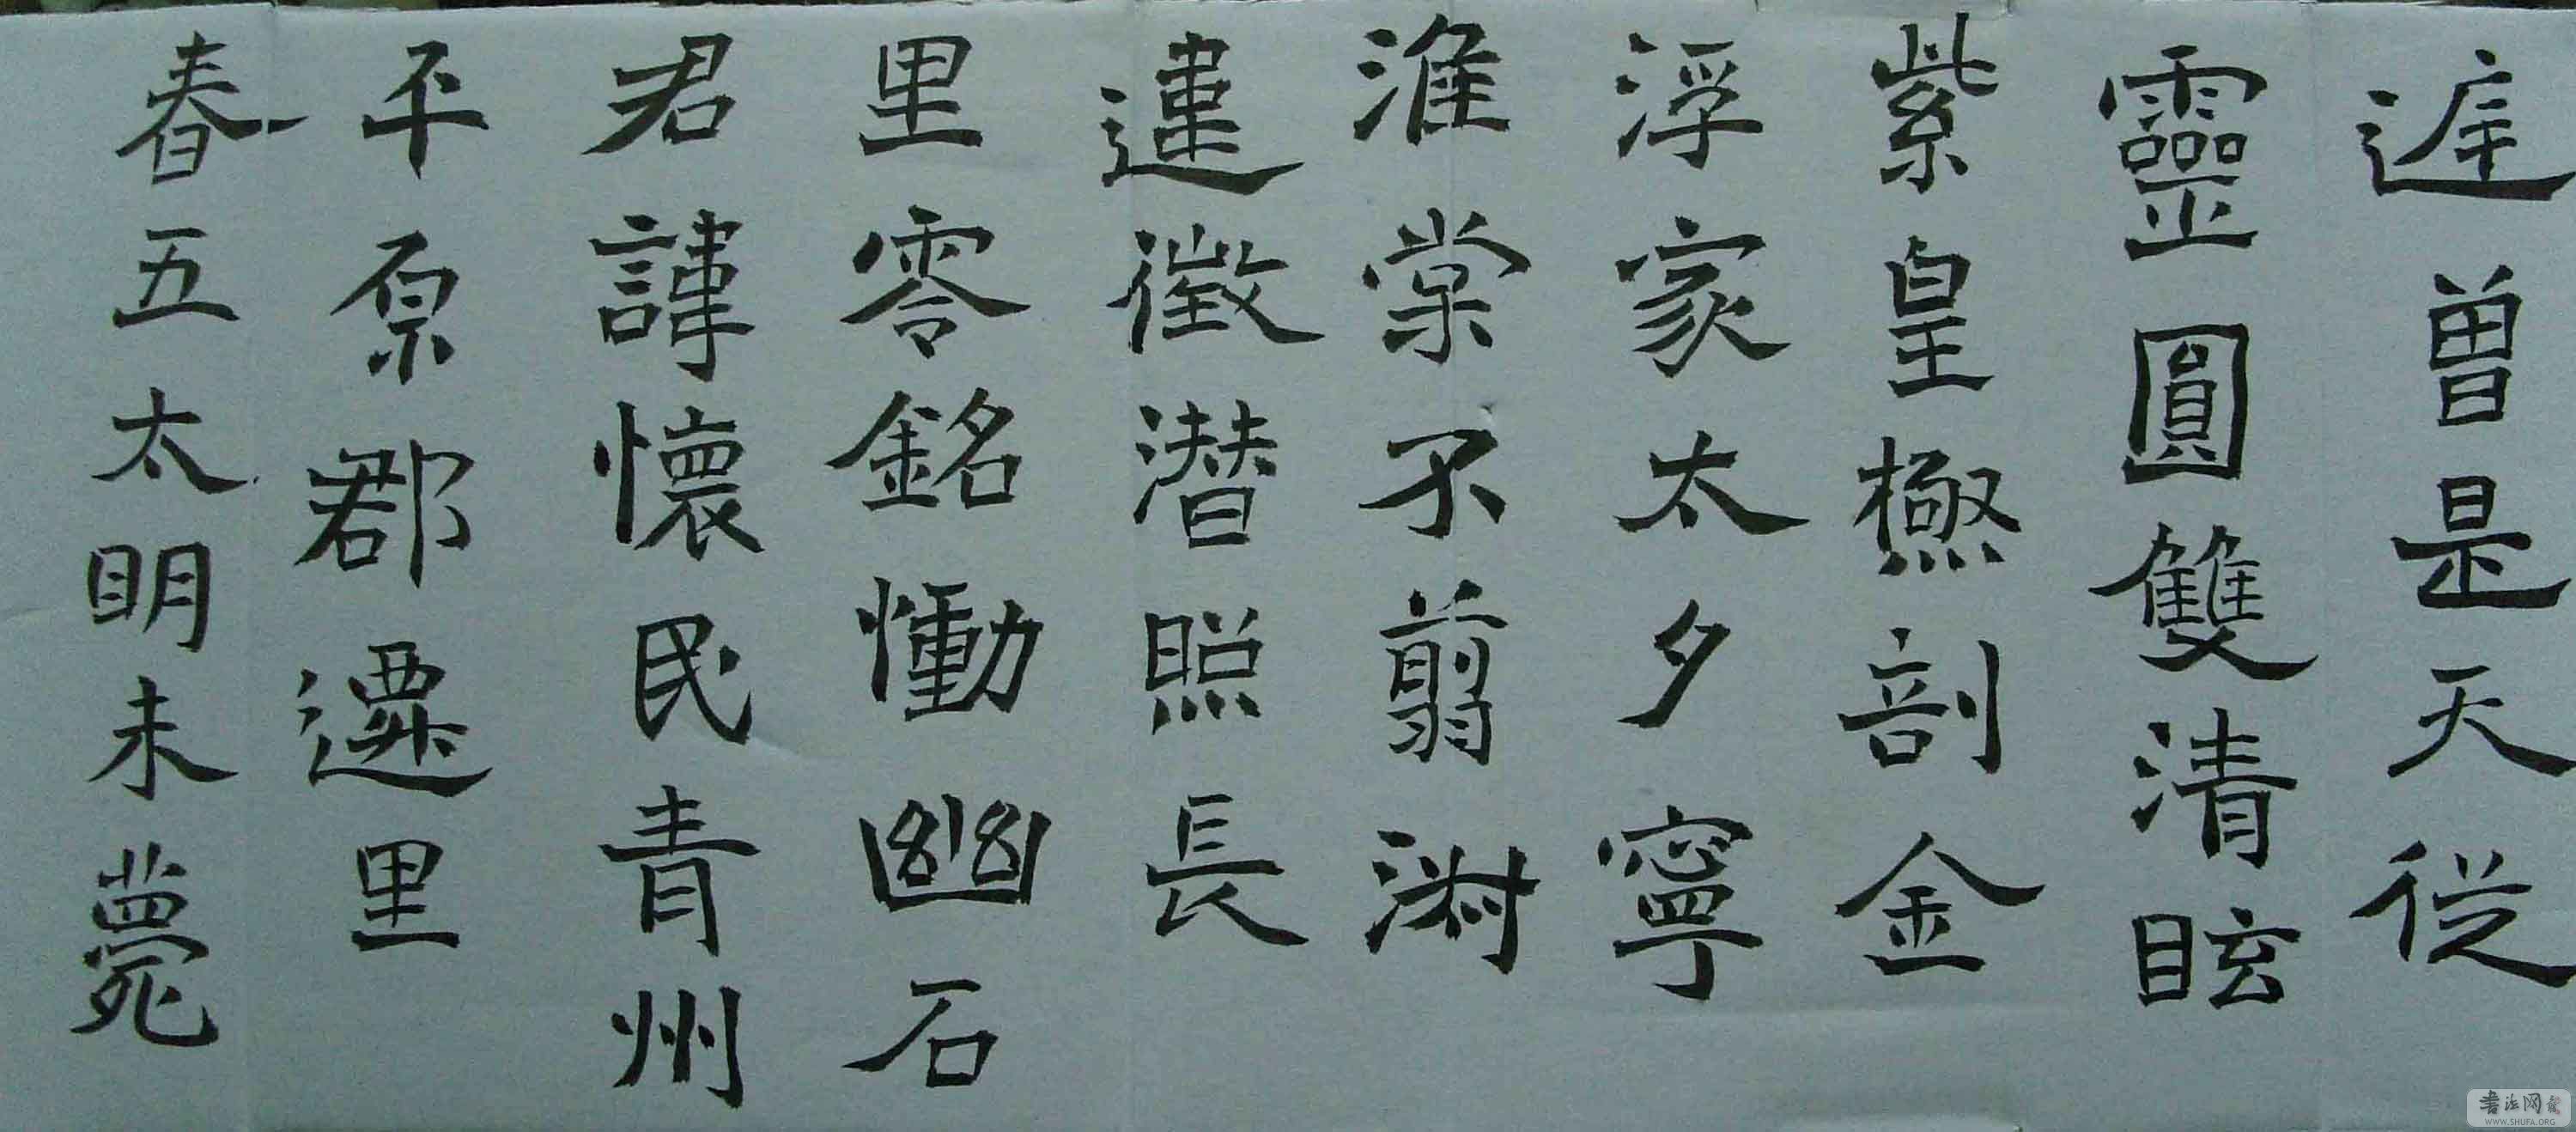 曾是天從
靈圓雙清眩
紫皇極剖金
浮家太夕寧
淮棠不翦
違徵潜照長
里零銘慟幽石
君諱懷民青州
平原郡遷里
春五太明未薨
書法网
WWW.SHUFA.ORG